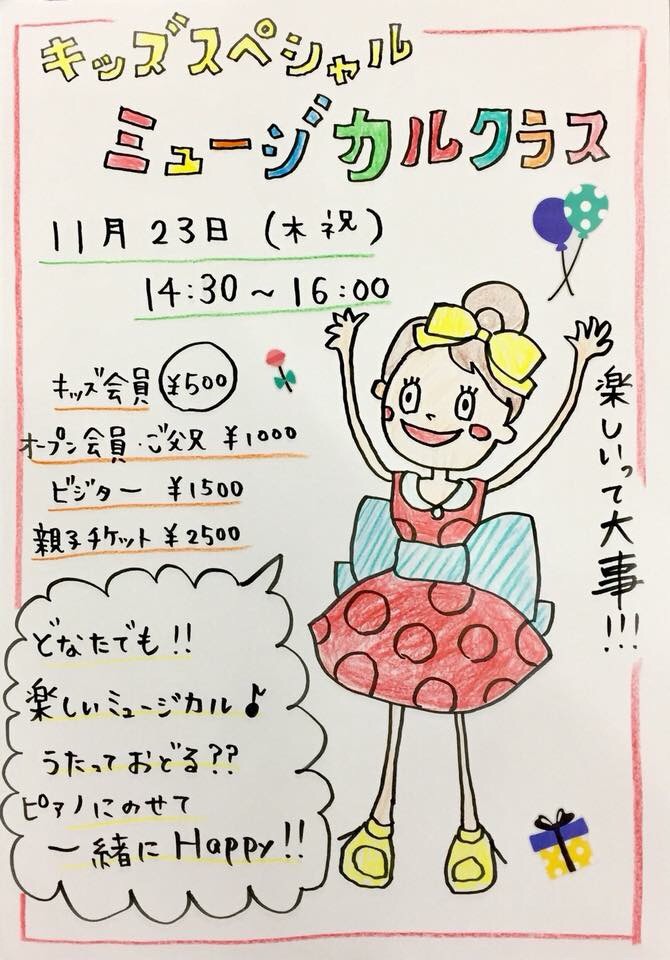 キッズスペシャル
ミュージカルクラス
11月23日(木祝)
14:30~16:00
キッズ会員 ¥500
オープン会員・ご父兄 ¥1000
ビジター ¥1500
親子チケット ¥2500
楽しいって大事!!!
どなたでも!!
楽しいミュージカル♪
うたっておどる??
ピアノにのせて
一緒にHappy!!